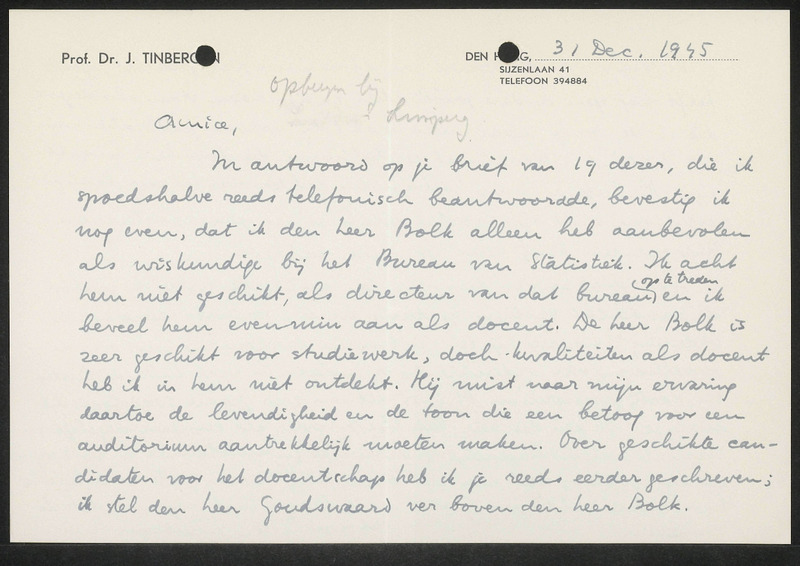 Prof. Dr. J. TINBERGEN
DEN HAAG, 31 Dec. 1945
SIJZENLAAN 41
TELEFOON 394884
opbergen bij
Limperg
Amice,
In antwoord op je brief van 19 dezer, die ik
spoedshalve reeds telefonisch beantwoordde, bevestig ik
nog even, dat ik den heer Bolk alleen heb aanbevolen
als wiskundige bij het Bureau van Statistiek. Ik acht
hem niet geschikt, als directeur van dat bureau op te treden en ik
beveel hem evenmin aan als docent. De heer Bolk is
zeer geschikt voor studiewerk, doch kwaliteiten als docent
heb ik in hem niet ontdekt. Hij mist naar mijn ervaring
daartoe de levendigheid en de toon die een betoog voor een
auditorium aantrekkelijk moeten maken. Over geschikte can-
didaten voor het docentschap heb ik je reeds eerder geschreven;
ik stel den heer Goudswaard ver boven den heer Bolk.